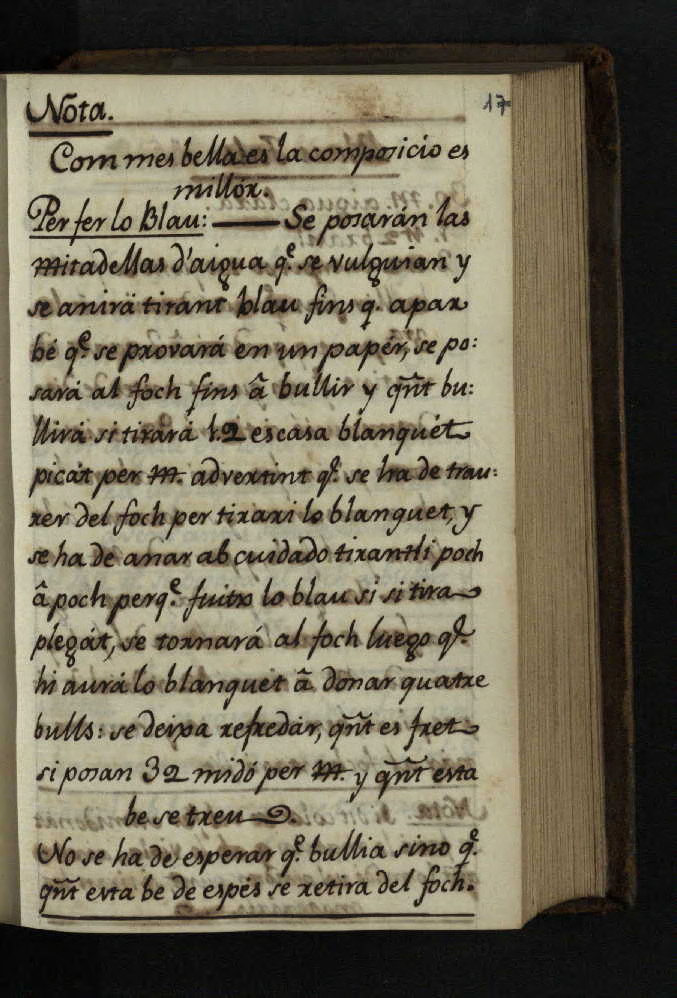 17
Nota.
Com mes bella es la composicio es
millór.
Per fer lo Blau: —— Se posarán las
mitadellas d'aigua q.ᵉ se vulguian y
se anirá tirant blau fins q. apar
bé q.ᵉ se provará en un papér, se po:
sará al foch fins â bullir y qñt bu:
llirá si tirará 1.2 escasa blanquét
picát per M. advertint q.ᵉ se ha de trau:
rer del foch per tirari lo blanquet, y
se ha de anar ab cuidado tirantli poch
â poch perq.ᵉ fuitx lo blau si si tira
plegát, se tornará al foch luego q.ᵉ
hi aurá lo blanquet â donar quatre
bulls: se deixa refredár, qñt es fret
si posan 32 midó per M. y qñt esta
be se treu.
No se ha de esperar q.ᵉ bullia sino q.ᵉ
qñt esta be de espés se retira del foch.